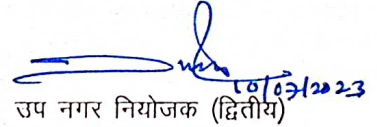 10/07/2023
उप नगर नियोजक (द्वितीय)